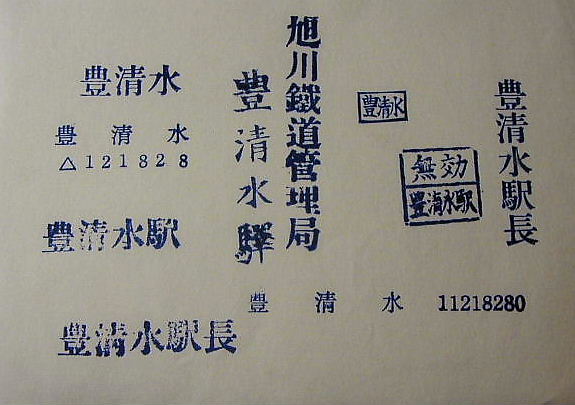 豊清水
豊清水
△121828
豊清水駅
豊清水駅長
旭川鐵道管理局
豊清水驛
豊清水
無効
豊清水駅
豊清水駅長
豊清水 11218280